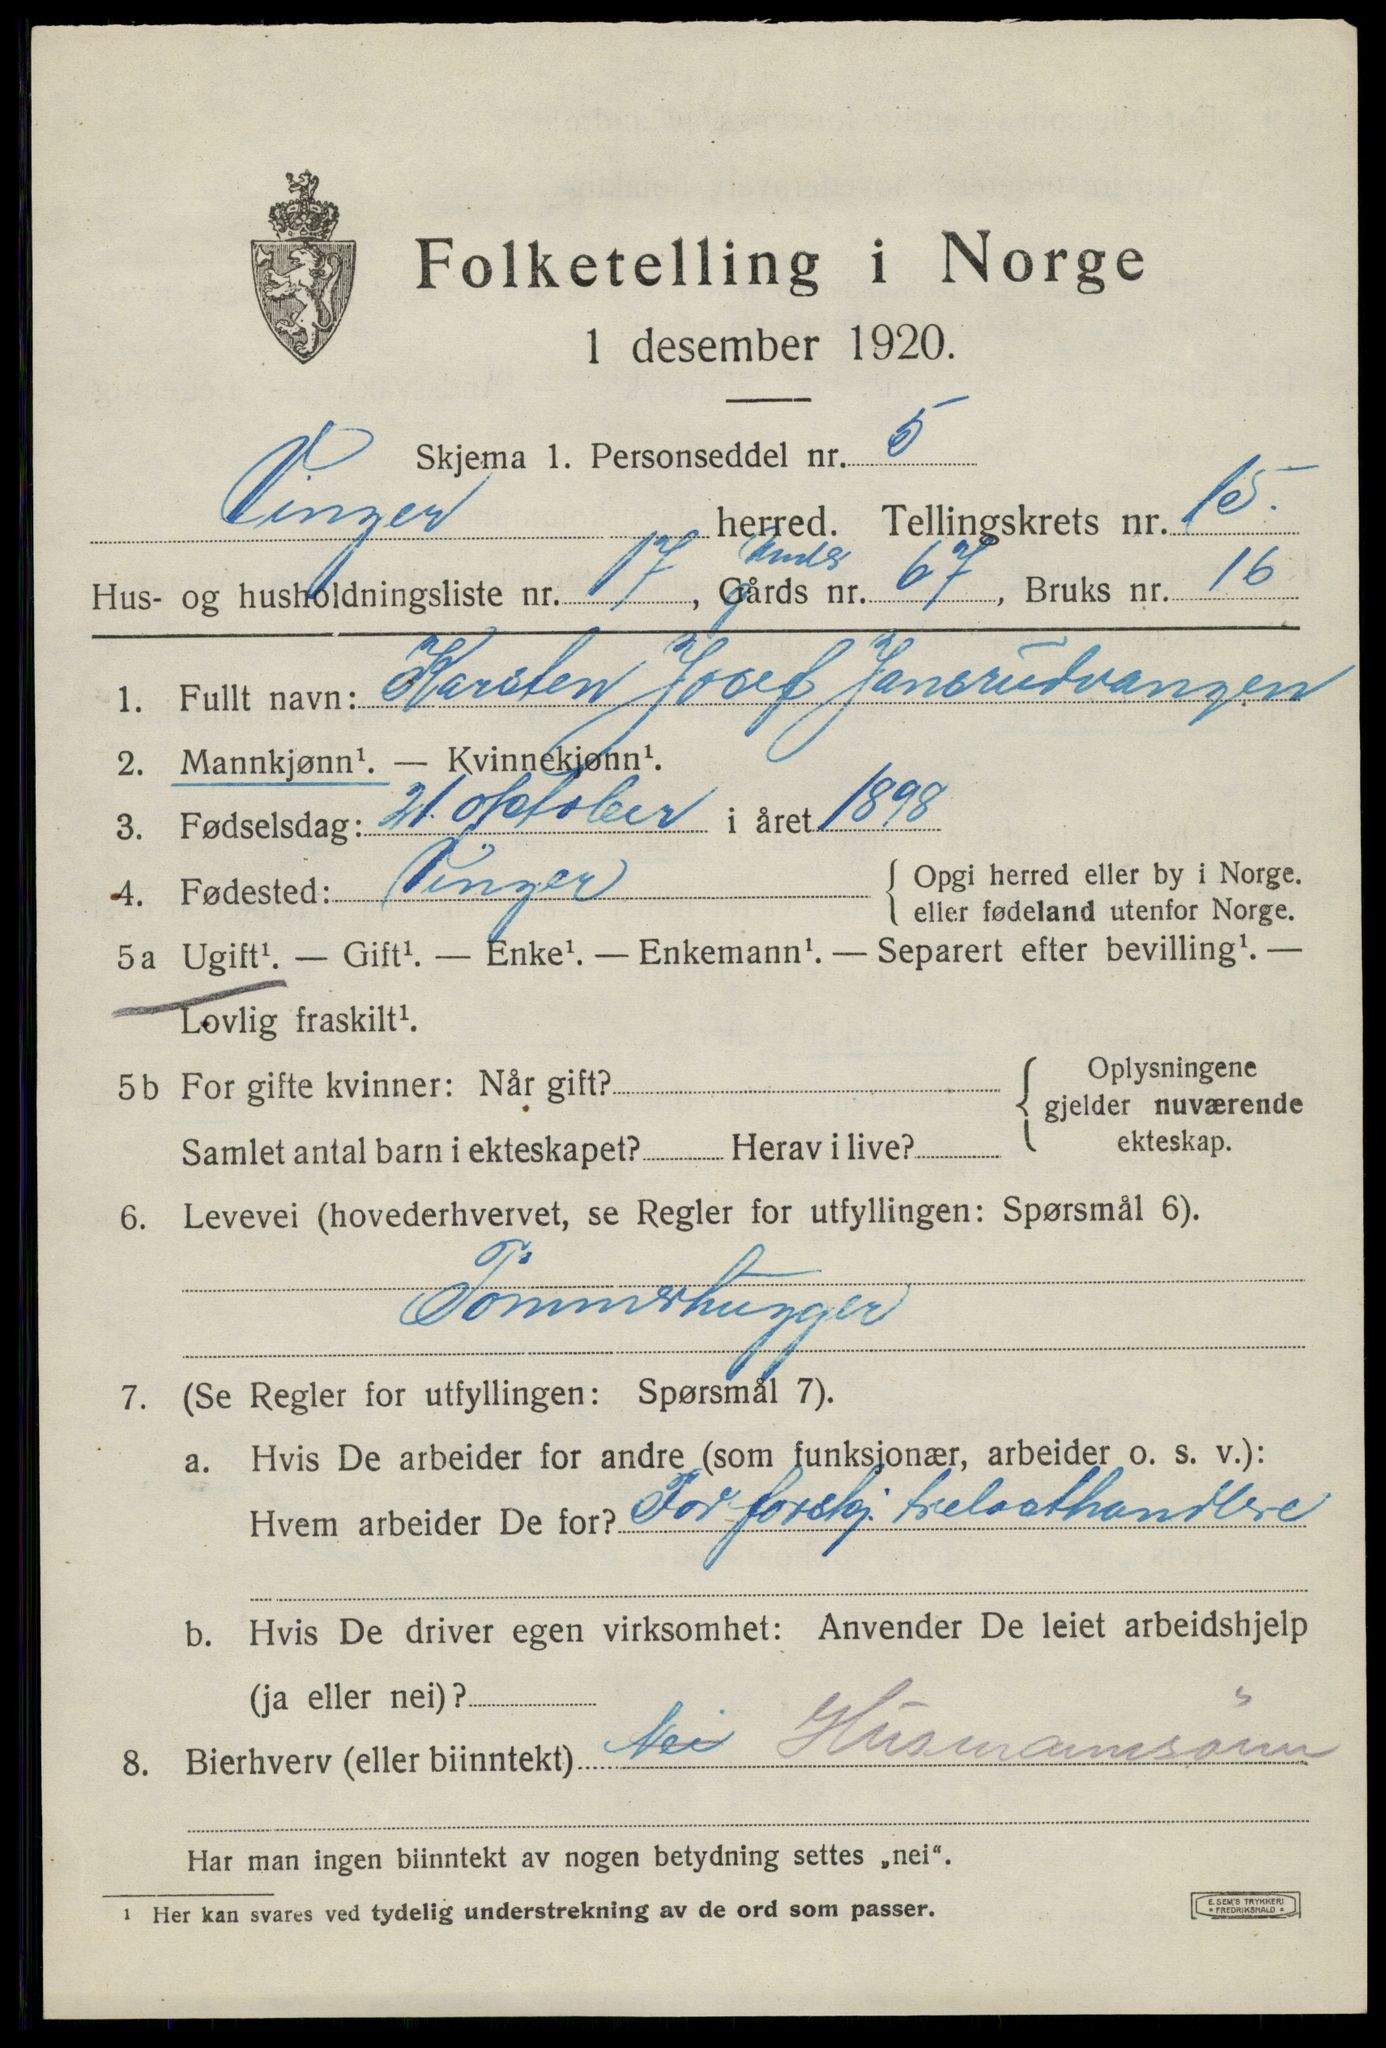 Folketelling i Norge
1 desember 1920.
Skjema 1. Personseddel nr. 5
Vinger herred. Tellingskrets nr. 15.
Hus- og husholdningsliste nr. 17, Gårds nr. 67, Bruks nr. 16
1. Fullt navn: Karsten Josef Jansrudvangen
2. Mannkjønn¹. — Kvinnekjønn¹.
3. Fødselsdag: 21. oktober i året 1898
4. Fødested: Vinger { Opgi herred eller by i Norge.
eller fødeland utenfor Norge.
5a Ugift¹. — Gift¹. — Enke¹. — Enkemann¹. — Separert efter bevilling¹. —
Lovlig fraskilt¹.
5b For gifte kvinner: Når gift? { Oplysningene
gjelder nuværende
Samlet antal barn i ekteskapet? Herav i live? ekteskap.
6. Levevei (hovederhvervet, se Regler for utfyllingen: Spørsmål 6).
Tömmerhugger
7. (Se Regler for utfyllingen: Spørsmål 7).
a. Hvis De arbeider for andre (som funksjonær, arbeider o. s. v.):
Hvem arbeider De for? For forskj. trelasthandlere
b. Hvis De driver egen virksomhet: Anvender De leiet arbeidshjelp
(ja eller nei)?
8. Bierhverv (eller biinntekt) Nei Husmannssönn
Har man ingen biinntekt av nogen betydning settes „nei“.
¹ Her kan svares ved tydelig understrekning av de ord som passer.
E. SEM'S TRYKKERI
* FREDRIKSHALD *